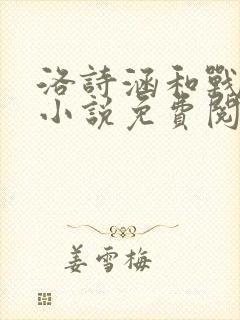 洛詩涵和戰
小說免費閱
姜雪梅